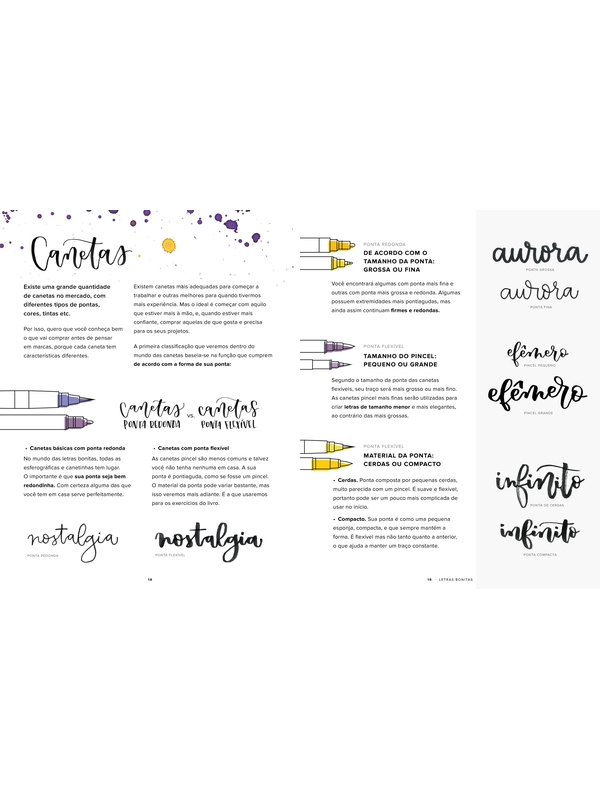 Canetas
Existe uma grande quantidade
de canetas no mercado, com
diferentes tipos de pontas,
cores, tintas etc.
Por isso, quero que você conheça bem
o que vai comprar antes de pensar
em marcas, porque cada caneta tem
características diferentes.
Existem canetas mais adequadas para começar a
trabalhar e outras melhores para quando tivermos
mais experiência. Mas o ideal é começar com aquilo
que estiver mais à mão, e, quando estiver mais
confiante, comprar aquelas de que gosta e precisa
para os seus projetos.
A primeira classificação que veremos dentro do
mundo das canetas baseia-se na função que cumprem
de acordo com a forma de sua ponta:
Canetas
PONTA REDONDA
vs.
canetas
PONTA FLEXÍVEL
• Canetas básicas com ponta redonda
No mundo das letras bonitas, todas as
esferográficas e canetinhas tem lugar.
O importante é que sua ponta seja bem
redondinha. Com certeza alguma das que
você tem em casa serve perfeitamente.
• Canetas com ponta flexível
As canetas pincel são menos comuns e talvez
você não tenha nenhuma em casa. A sua
ponta é pontiaguda, como se fosse um pincel.
O material da ponta pode variar bastante, mas
isso veremos mais adiante. É a que usaremos
para os exercícios do livro.
nostalgia
PONTA REDONDA
nostalgia
PONTA FLEXÍVEL
18
PONTA REDONDA
DE ACORDO COM O
TAMANHO DA PONTA:
GROSSA OU FINA
Você encontrará algumas com ponta mais fina e
outras com ponta mais grossa e redonda. Algumas
possuem extremidades mais pontiagudas, mas
ainda assim continuam firmes e redondas.
PONTA FLEXÍVEL
TAMANHO DO PINCEL:
PEQUENO OU GRANDE
Segundo o tamanho da ponta das canetas
flexíveis, seu traço será mais grosso ou mais fino.
As canetas pincel mais finas serão utilizadas para
criar letras de tamanho menor e mais elegantes,
ao contrário das mais grossas.
PONTA FLEXÍVEL
MATERIAL DA PONTA:
CERDAS OU COMPACTO
• Cerdas. Ponta composta por pequenas cerdas,
muito parecida com um pincel. É suave e flexível,
portanto pode ser um pouco mais complicada de
usar no início.
• Compacto. Sua ponta é como uma pequena
esponja, compacta, e que sempre mantém a
forma. É flexível mas não tanto quanto a anterior,
o que ajuda a manter um traço constante.
19 · LETRAS BONITAS
aurora
PONTA GROSSA
aurora
PONTA FINA
efêmero
PINCEL PEQUENO
efêmero
PINCEL GRANDE
infinito
PONTA DE CERDAS
infinito
PONTA COMPACTA